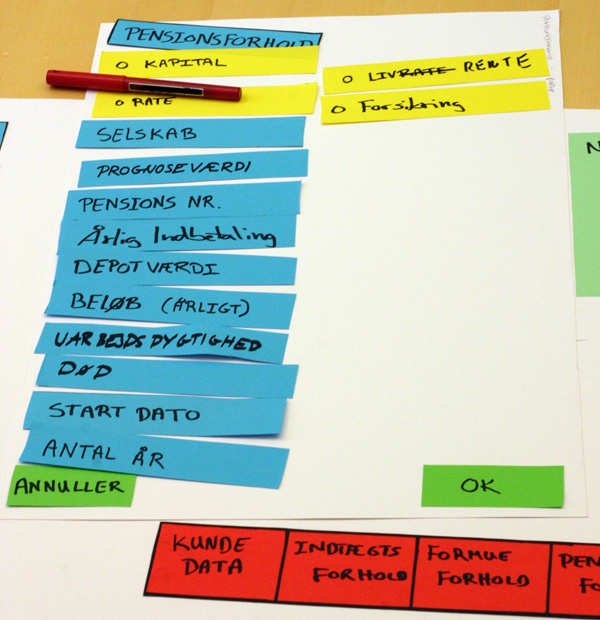 PENSIONSFORHOLD
o KAPITAL
o LIVRATE RENTE
o RATE
o Forsikring
SELSKAB
PROGNOSEVÆRDI
PENSIONS NR.
Årlig Indbetaling
DEPOTVÆRDI
BELØB (ÅRLIGT)
UARBEJDSDYGTIGHED
DØD
START DATO
ANTAL ÅR
ANNULLER
OK
KUNDE
DATA
INDTÆGTS
FORHOLD
FORMUE
FORHOLD
PEN
FO
N